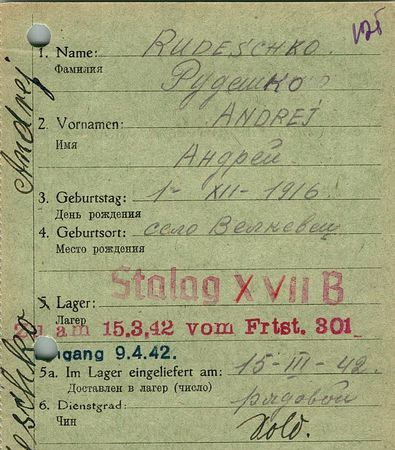 125
1. Name: RUDESCHKO.
Фамилия Рудешко
2. Vornamen: ANDREJ
Имя Андрей
3. Geburtstag: 1- XII - 1916
День рождения
4. Geburtsort: село
Место рождения
Stalag XVII B
5. Lager:
Лагер
am 15.3.42 vom Frtst. 301
gang 9.4.42.
5a. Im Lager eingeliefert am: 15-III-42.
Доставлен в лагер (число)
6. Dienstgrad: рядовой
Чин Sold.
Andrej
eschko